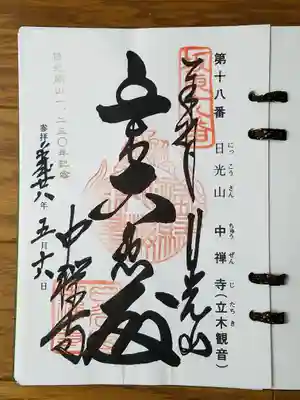 第十八番 日光山 中禅寺(立木観音)
にっこうさん ちゅうぜんじ たちき
奉拝 日光山
立木大悲殿
中禅寺
勝道開山一、二五〇年記念
参拝 平成廿八年 五月 十六日